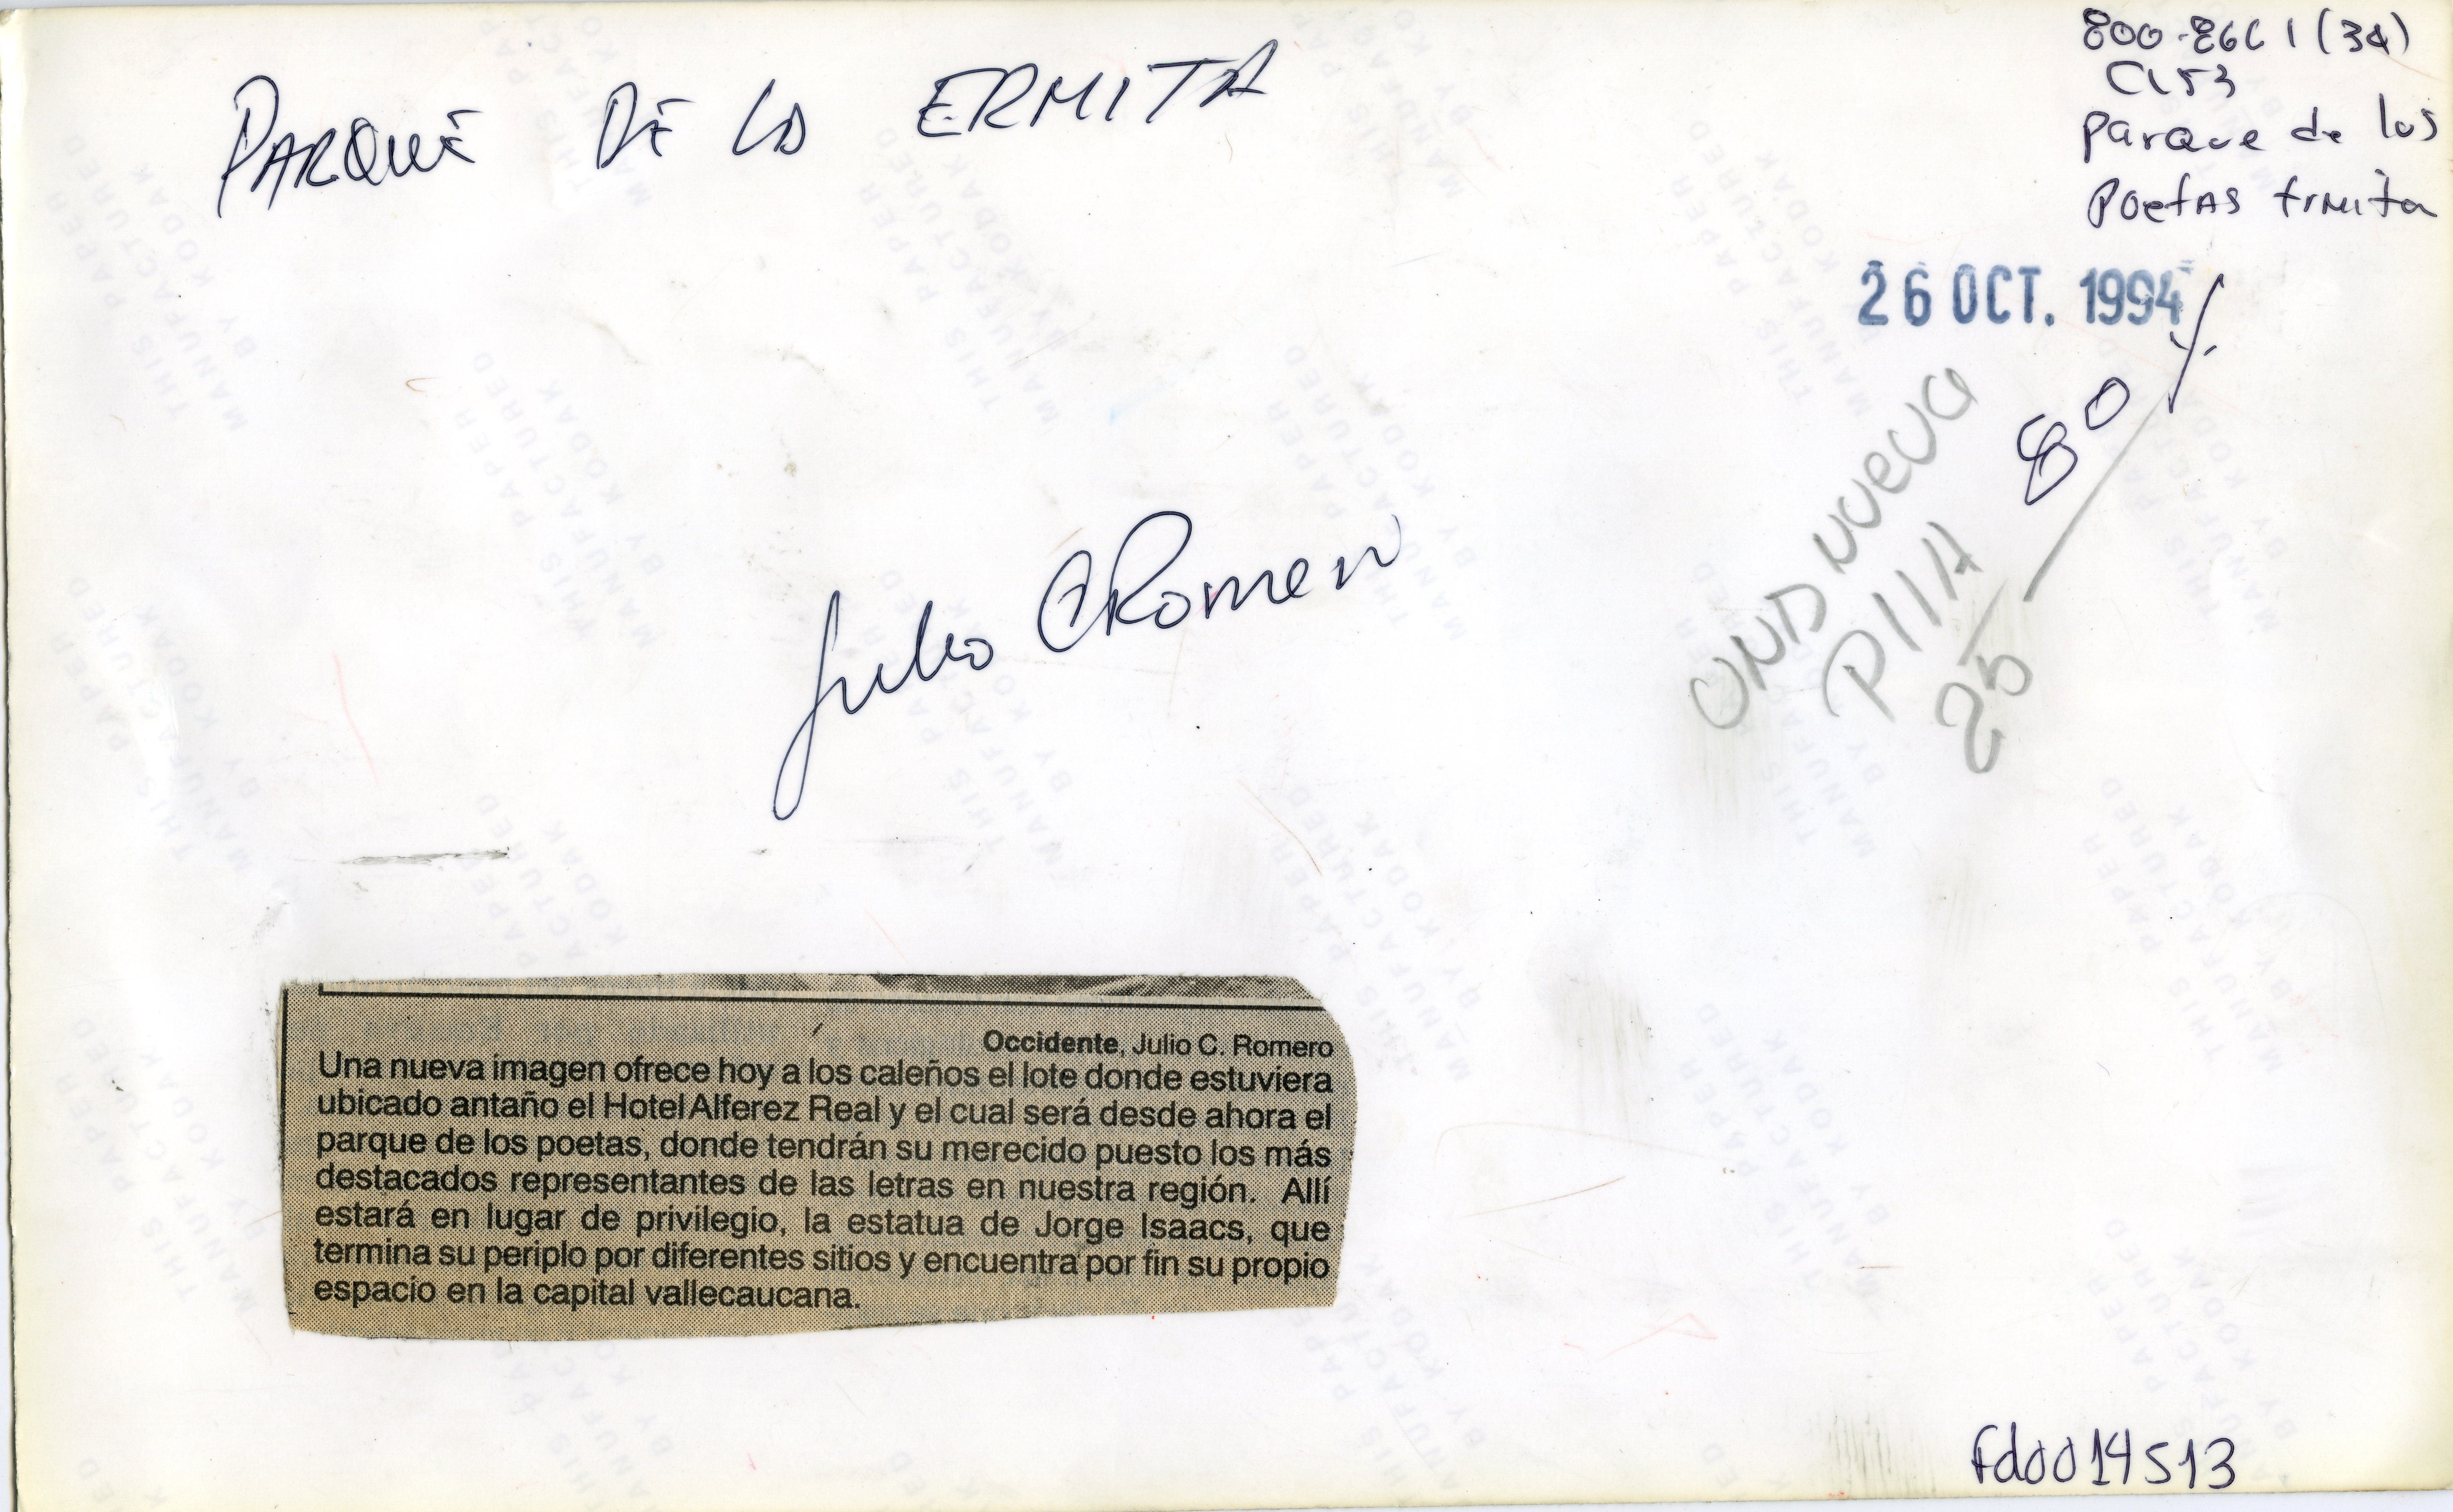 PARQUE DE LA ERMITA
800-8661(34)
C153
parque de los
poetas Ermita
26 OCT. 1994
80
UNA NUEVA
Julio C Romero
Occidente, Julio C. Romero
Una nueva imagen ofrece hoy a los caleños el lote donde estuviera
ubicado antaño el Hotel Alferez Real y el cual será desde ahora el
parque de los poetas, donde tendrán su merecido puesto los más
destacados representantes de las letras en nuestra región. Allí
estará en lugar de privilegio, la estatua de Jorge Isaacs, que
termina su periplo por diferentes sitios y encuentra por fin su propio
espacio en la capital vallecaucana.
Fd0014513
THIS PAPER
MANUFACTURED
BY KODAK